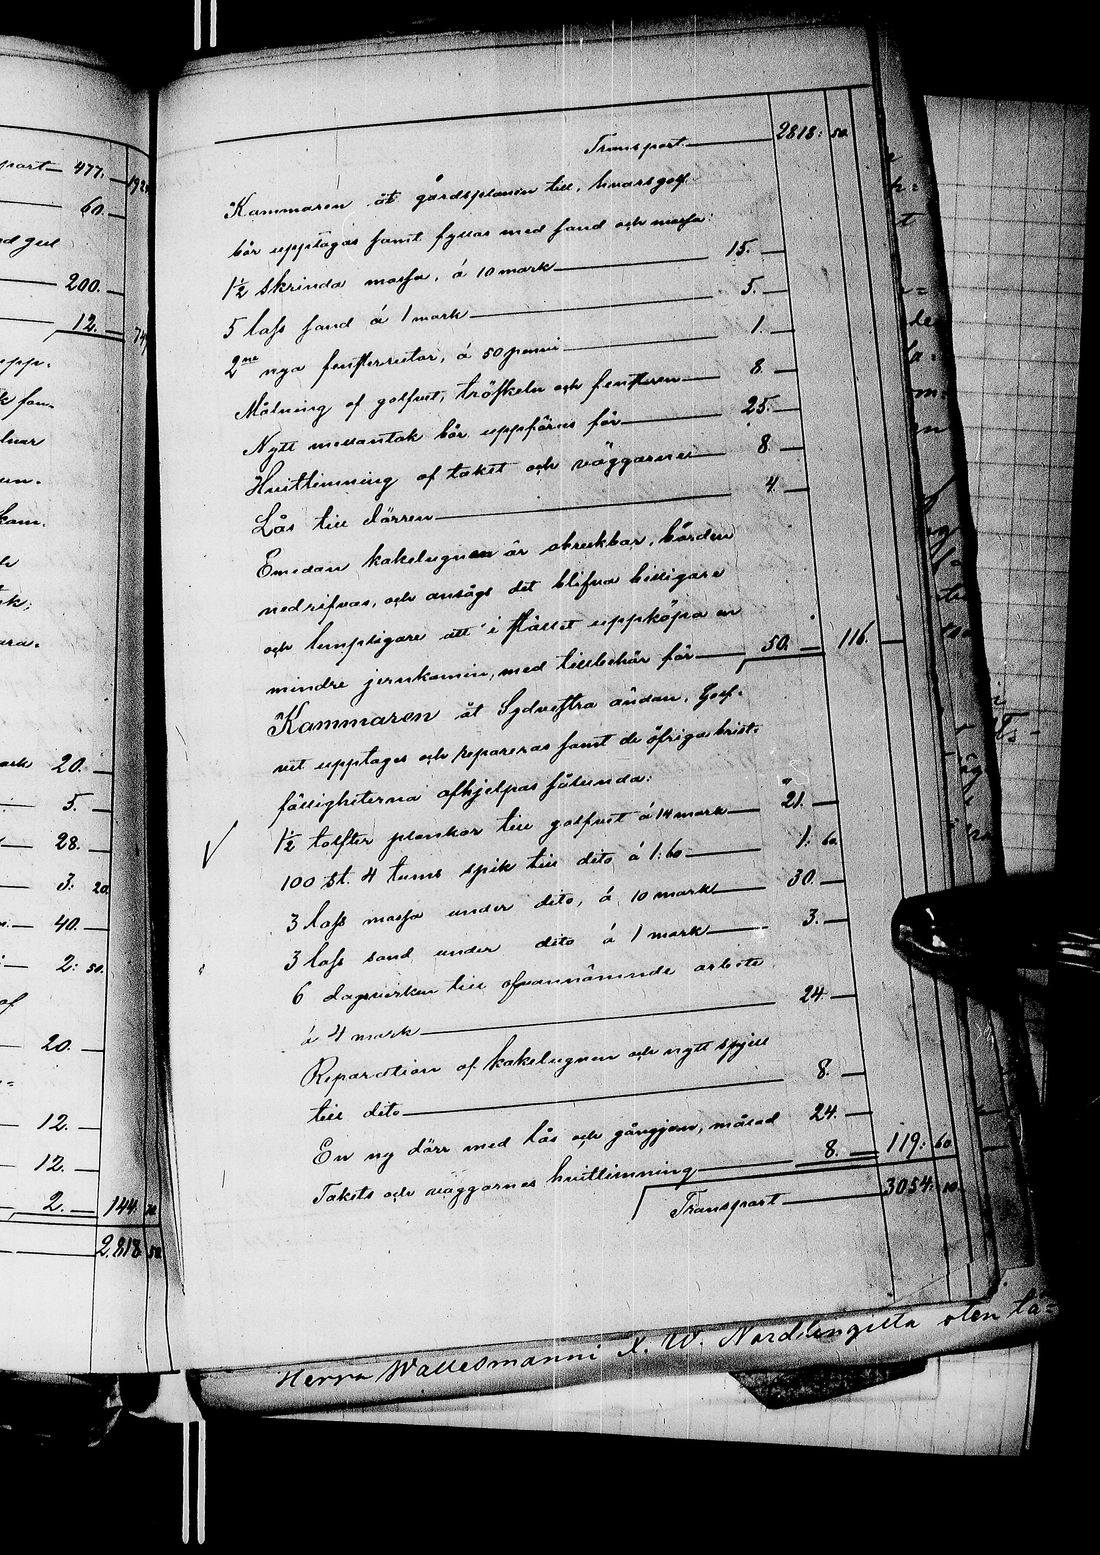 Transport 2818: 50.
Kammaren åt gårdsplanen till, hvars golf
bör upptagas samt fyllas med sand och mossa:
1½ skrinda mossa, á 10 mark 15.
5 lass sand á 1 mark 5.
2ne nya fensterrutor, á 50 penni 1.
Målning af golfvet, tröskeln och fenstren 8.
Nytt mellantak bör uppföras för 25.
Hvitlimning af taket och väggarne 8.
Lås till dörren 4.
Emedan kakelugnen är obrukbar, bör den
nedrifvas, och ansågs det blifva billigare
och lämpligare att i stället uppköpa en
mindre jernkamin, med tillbehör för 50. 116.
Kammaren åt Sydvestra ändan. Golf-
vet upptages och repareras samt de öfriga brist-
fälligheterna afhjelpas sålunda:
1½ tolfter plankor till golfvet á 14 mark 21.
100 st. 4 tums spik till dito á 1:60 1: 60.
3 lass mossa under dito, á 10 mark 30.
3 lass sand under dito á 1 mark 3.
6 dagsverken till ofvannämnde arbete
á 4 mark 24.
Reparation af kakelugnen och nytt spjell
till dito 8.
En ny dörr med lås och gångjern, målad 24.
Takets och väggarnes hvitlimning 8. 119: 60.
Transport 3054: 10.
Herra Wallesmanni K. W. Nordlingilta olen
port 477.
60.
200.
12.
20.
5.
28.
3. 20.
40.
2: 50.
af
20.
12.
12.
2. 144.
2.818 50.